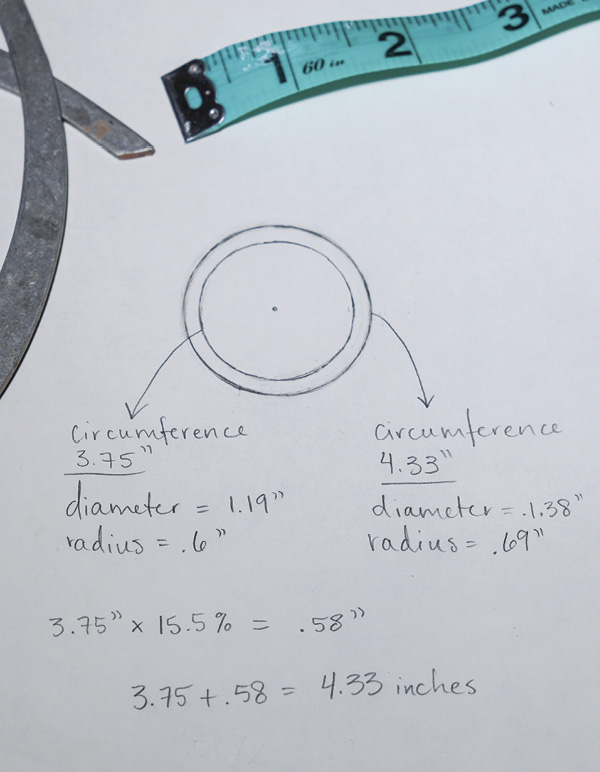 1
60 in
2
3
MADE
circumference
3.75"
diameter = 1.19"
radius = .6"
circumference
4.33"
diameter = .1.38"
radius = .69"
3.75" x 15.5% = .58"
3.75 + .58 = 4.33 inches